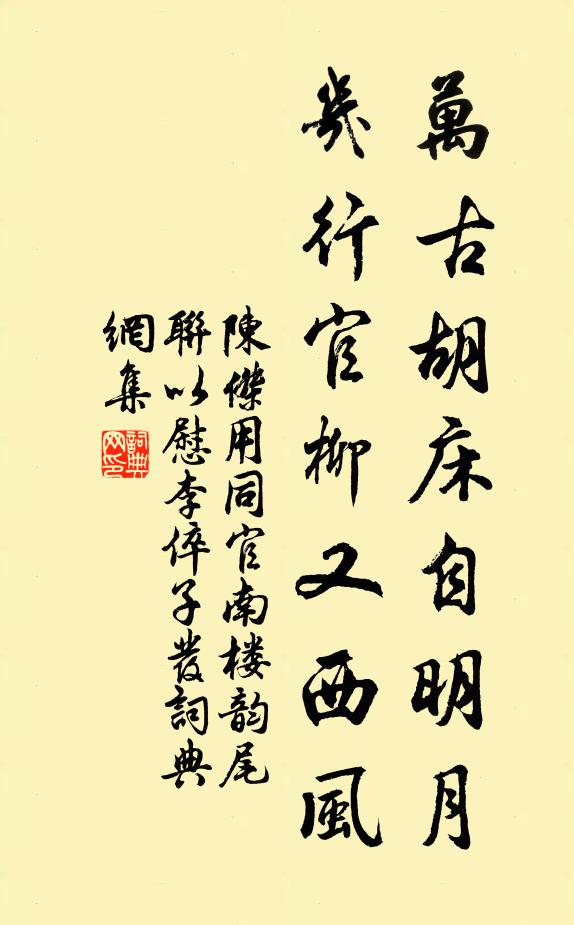 萬古胡床自明月
幾行官柳又西風
陳傑用同官南楼韵尾
聯以慰李倅子發詞典
網集
詞典
网印